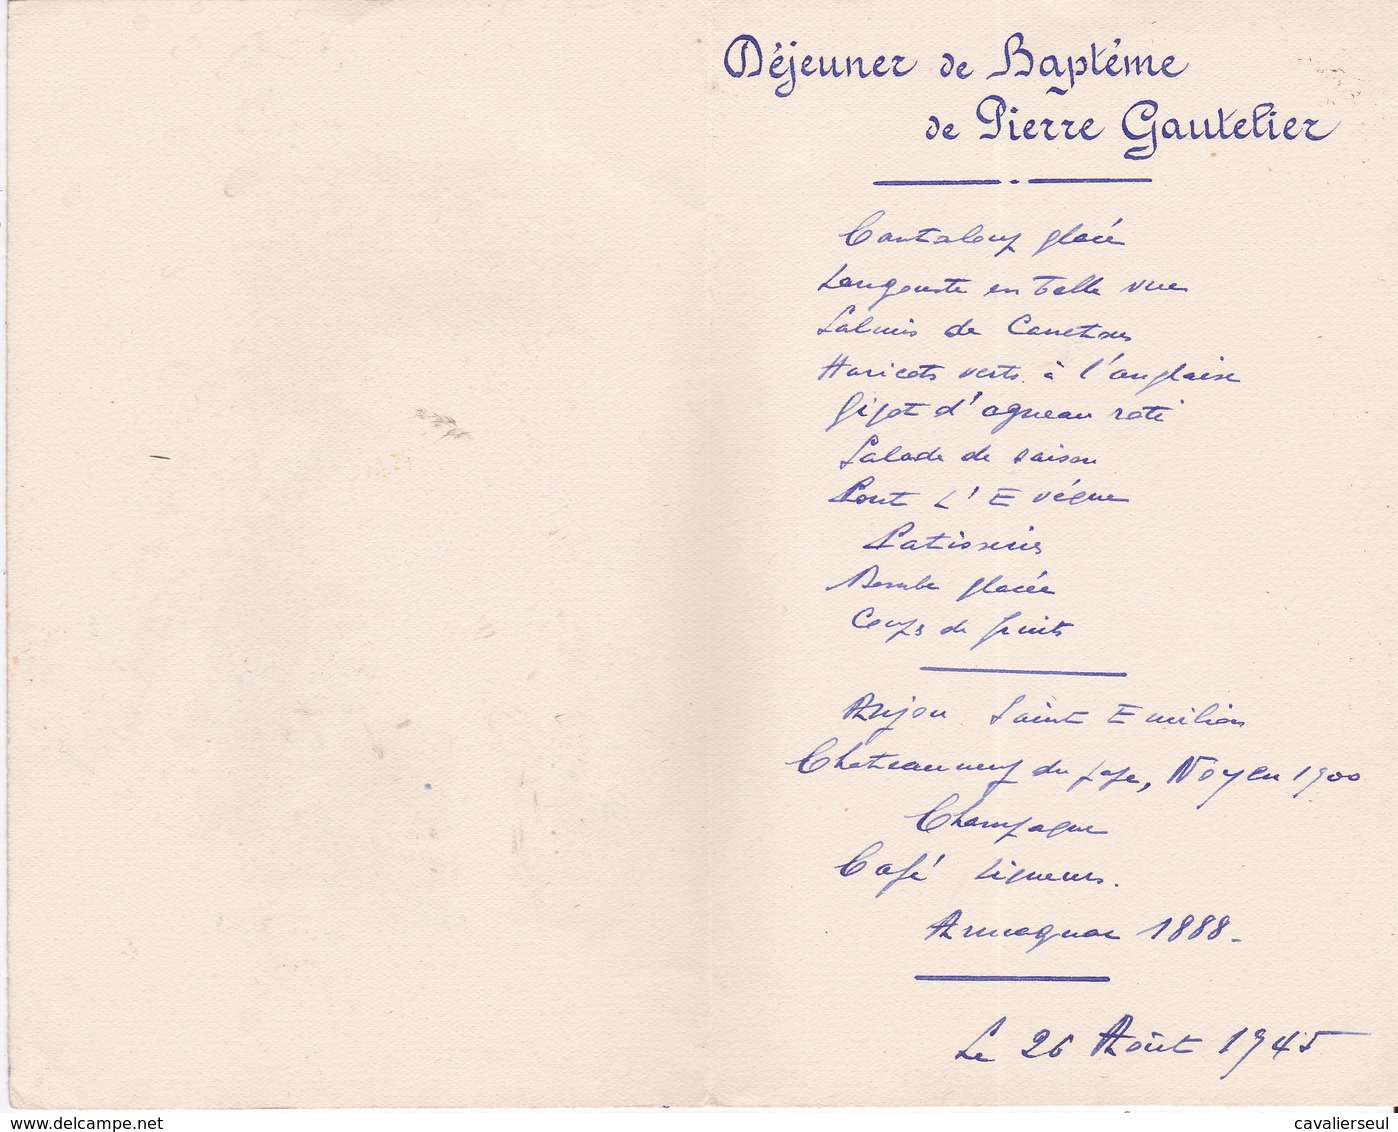 Déjeuner de Baptéme
de Pierre Gautelier
Cantaloup glacé
Langouste en belle vue
Salmis de Canetons
Haricots verts à l'anglaise
Gigot d'agneau roti
Salade de saison
Pont L'Evéque
Patisserie
Bombe glacée
Coups de fruits
Anjou Saint Emilion
Chateauneuf du pape, 1900
Champagne
Café Liqueurs.
Armagnac 1888-
Le 26 Août 1945
www.delcampe.net
cavalierseul